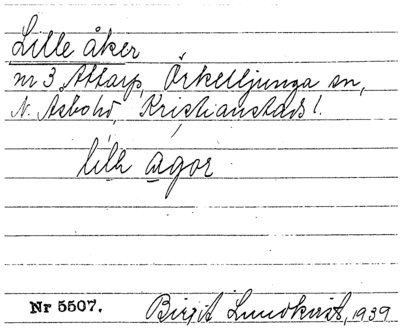 Lille åker
nr 3 Attarp, Örkelljunga sn,
N. Åsbohd, Kristianstads l.
lill agor
Nr 5507. Birgit Lundkvist, 1939